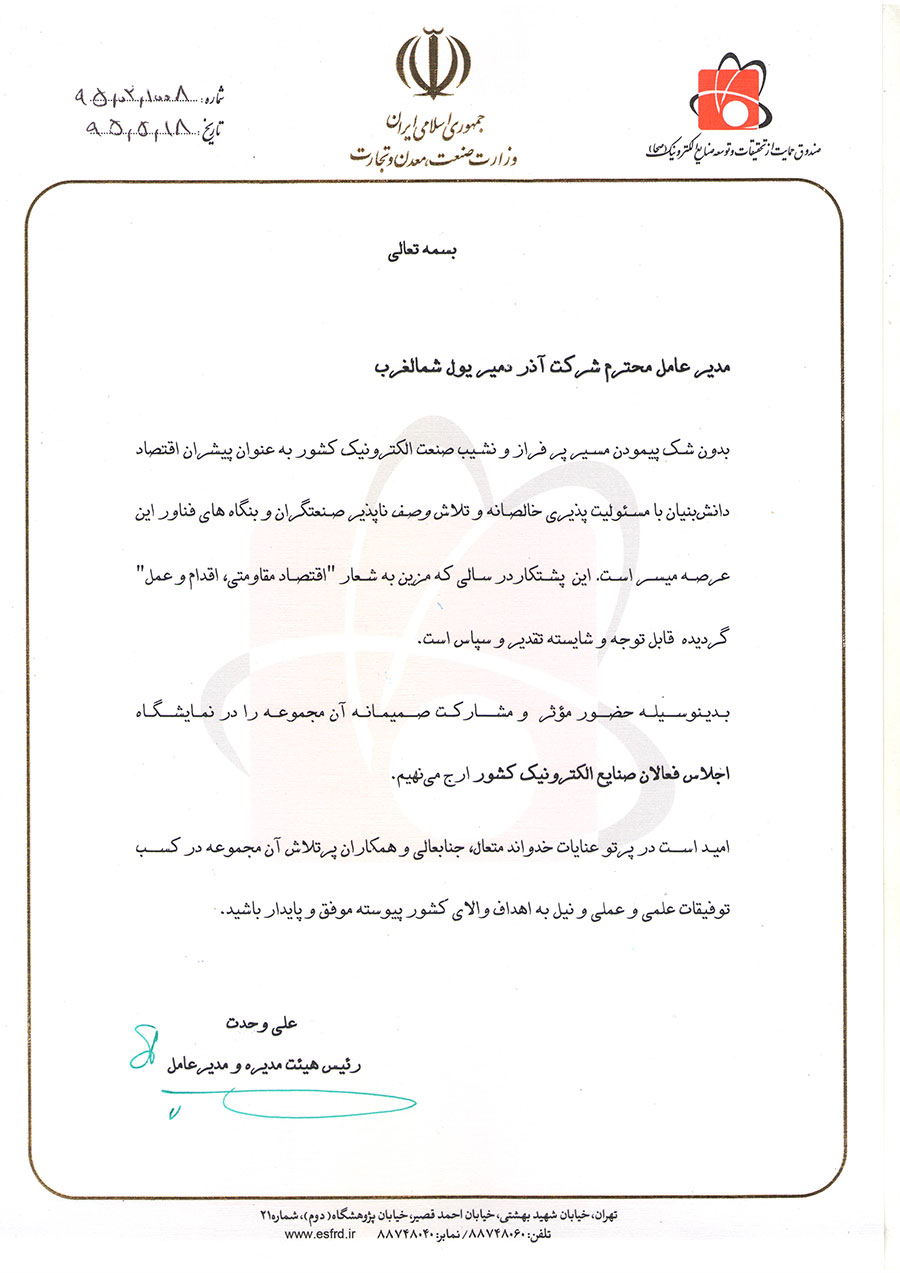 جمهوری اسلامی ایران
وزارت صنعت، معدن و تجارت
صندوق حمایت از تحقیقات و توسعه صنایع الکترونیک (صحا)
شماره: ۹۵،۰۲،۱۰۰۸
تاریخ: ۹۵،۵،۱۸
بسمه تعالی
مدیر عامل محترم شرکت آذر دمیر یول شمالغرب
بدون شک پیمودن مسیر پر فراز و نشیب صنعت الکترونیک کشور به عنوان پیشران اقتصاد
دانش‌بنیان با مسئولیت پذیری خالصانه و تلاش وصف ناپذیر صنعتگران و بنگاه های فناور این
عرصه میسر است. این پشتکار در سالی که مزین به شعار "اقتصاد مقاومتی، اقدام و عمل"
گردیده قابل توجه و شایسته تقدیر و سپاس است.
بدینوسیله حضور مؤثر و مشارکت صمیمانه آن مجموعه را در نمایشگاه
اجلاس فعالان صنایع الکترونیک کشور ارج می‌نهیم.
امید است در پرتو عنایات خدواند متعال، جنابعالی و همکاران پرتلاش آن مجموعه در کسب
توفیقات علمی و عملی و نیل به اهداف والای کشور پیوسته موفق و پایدار باشید.
علی وحدت
رئیس هیئت مدیره و مدیرعامل
تهران، خیابان شهید بهشتی، خیابان احمد قصیر، خیابان پژوهشگاه (دوم)، شماره ۲۱
تلفن: ۸۸۷۴۸۰۶۰ / نمابر: ۸۸۷۴۸۰۴۰ www.esfrd.ir